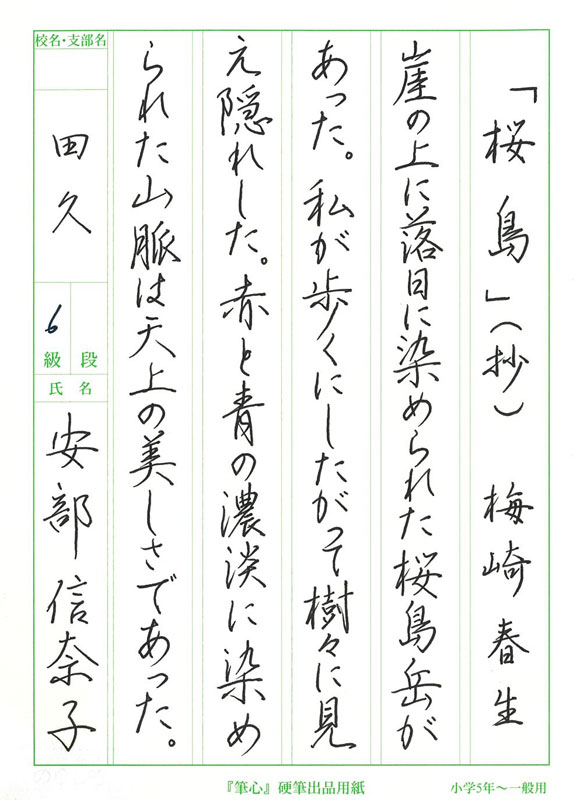 「桜島」（抄）　梅崎春生
崖の上に落日に染められた桜島岳が
あった。私が歩くにしたがって樹々に見
え隠れした。赤と青の濃淡に染め
られた山脈は天上の美しさであった。
校名・支部名
田久
6
級 段
氏名
安部信奈子
『筆心』硬筆出品用紙
小学5年～一般用